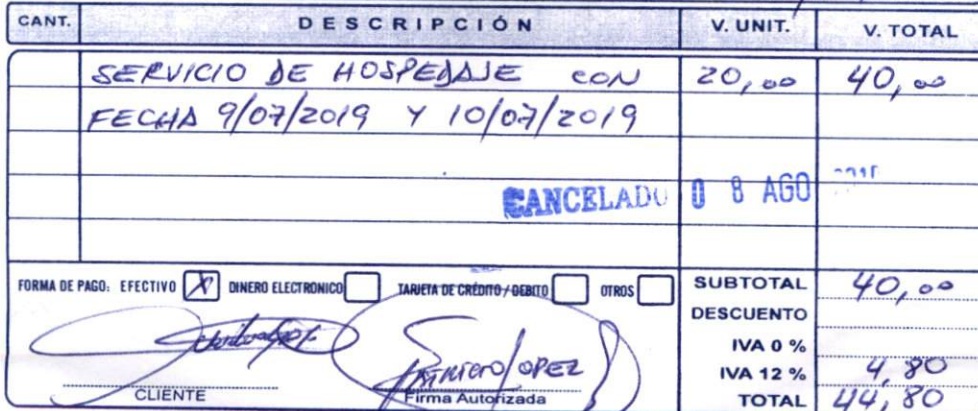 CANT. DESCRIPCIÓN V. UNIT. V. TOTAL
SERVICIO DE HOSPEDAJE CON 20,00 40,00
FECHA 9/07/2019 Y 10/07/2019
CANCELADO 08 AGO
FORMA DE PAGO: EFECTIVO X DINERO ELECTRONICO TARJETA DE CRÉDITO / DEBITO OTROS SUBTOTAL 40,00
DESCUENTO
IVA 0 %
IVA 12 % 4,80
LOPEZ
CLIENTE Firma Autorizada TOTAL 44,80